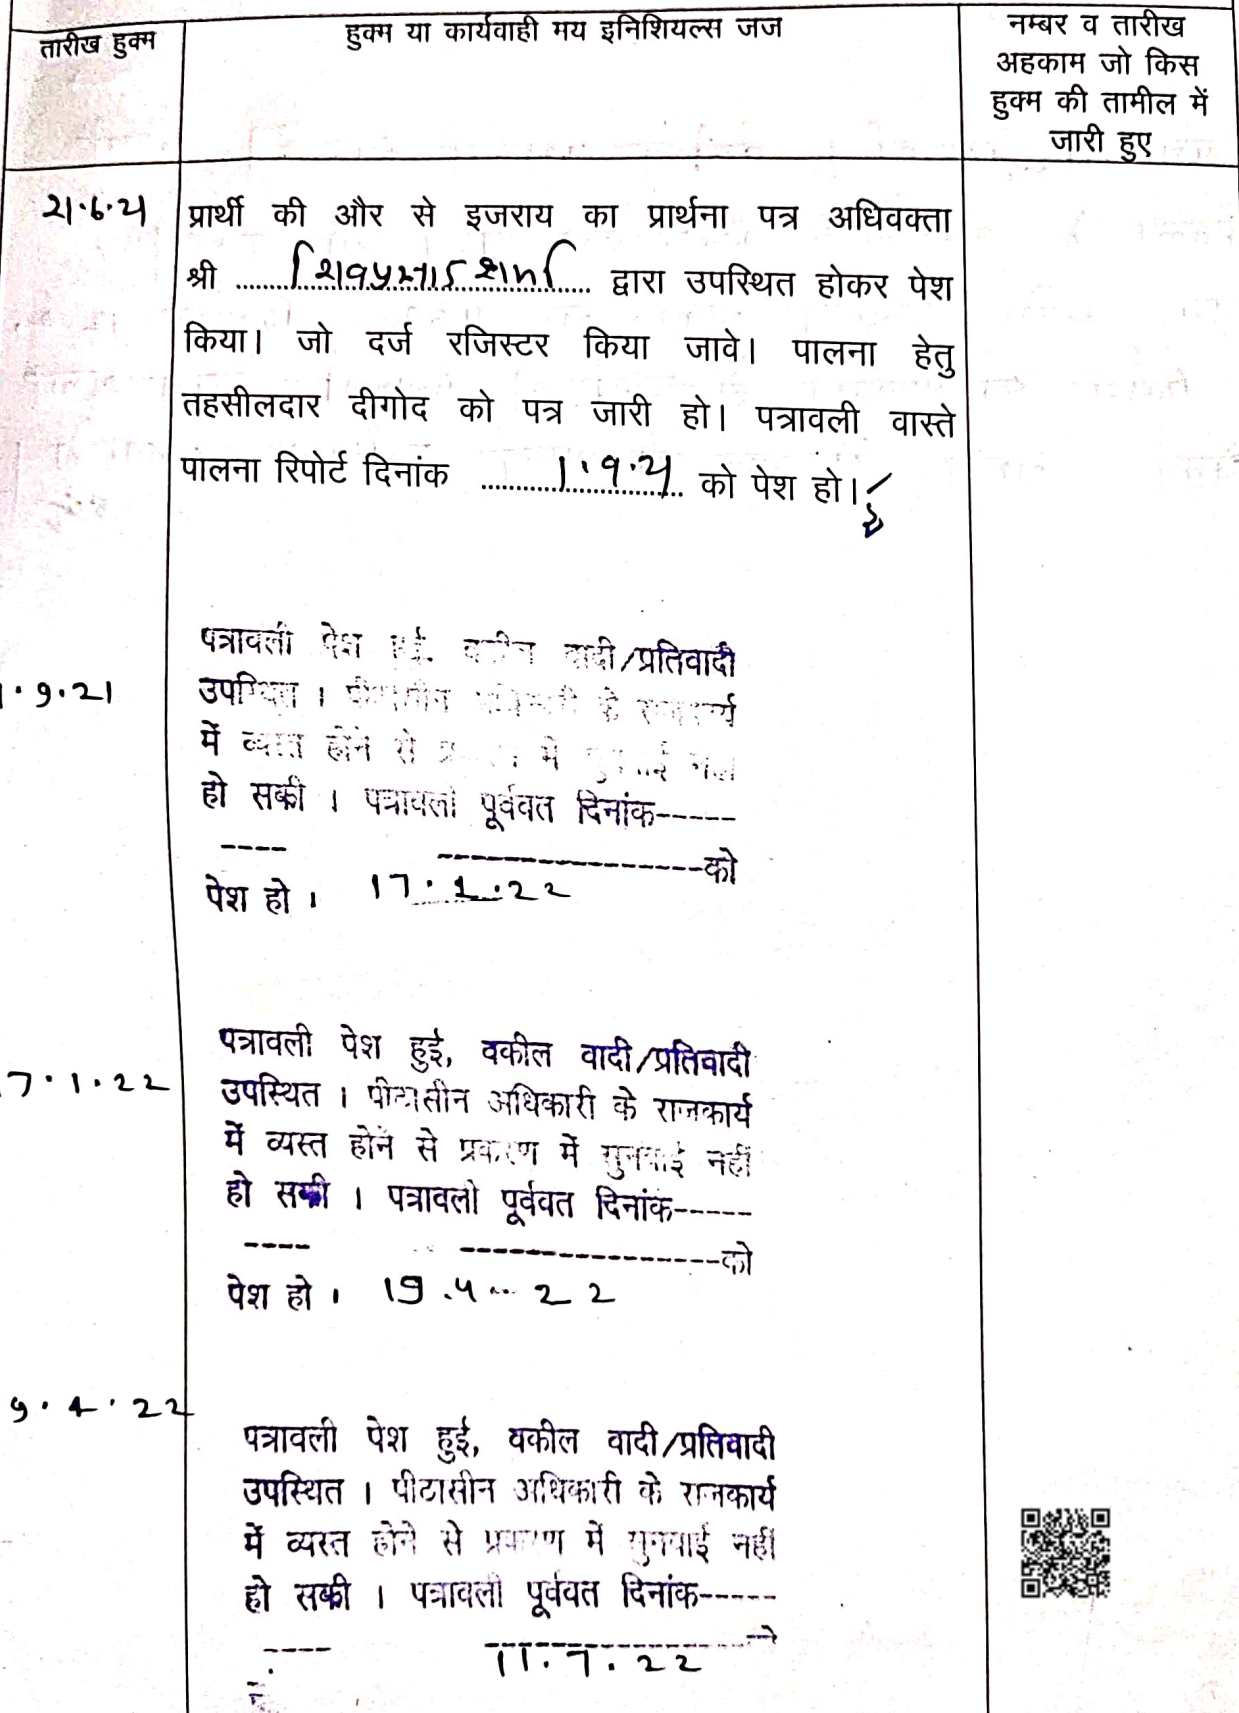 तारीख हुक्म
हुक्म या कार्यवाही मय इनिशियल्स जज
नम्बर व तारीख
अहकाम जो किस
हुक्म की तामील में
जारी हुए
21.6.21
प्रार्थी की और से इजराय का प्रार्थना पत्र अधिवक्ता
श्री शिवप्रसाद शर्मा द्वारा उपस्थित होकर पेश
किया। जो दर्ज रजिस्टर किया जावे। पालना हेतु
तहसीलदार दीगोद को पत्र जारी हो। पत्रावली वास्ते
पालना रिपोर्ट दिनांक 1.9.21 को पेश हो।
पत्रावली पेश हुई, वकील वादी/प्रतिवादी
.9.21
उपस्थित । पीटासीन अधिकारी के राजकार्य
में व्यस्त होने से प्रकरण में सुनवाई नहीं
हो सकी । पत्रावली पूर्ववत दिनांक-----
---- ----------------को
पेश हो । 17.1.22
पत्रावली पेश हुई, वकील वादी/प्रतिवादी
7.1.22
उपस्थित । पीटासीन अधिकारी के राजकार्य
में व्यस्त होने से प्रकरण में सुनवाई नहीं
हो सकी । पत्रावली पूर्ववत दिनांक-----
---- ----------------को
पेश हो । 19.4.22
9.4.22
पत्रावली पेश हुई, वकील वादी/प्रतिवादी
उपस्थित । पीटासीन अधिकारी के राजकार्य
में व्यस्त होने से प्रकरण में सुनवाई नहीं
हो सकी । पत्रावली पूर्ववत दिनांक-----
---- ----------------
11.7.22